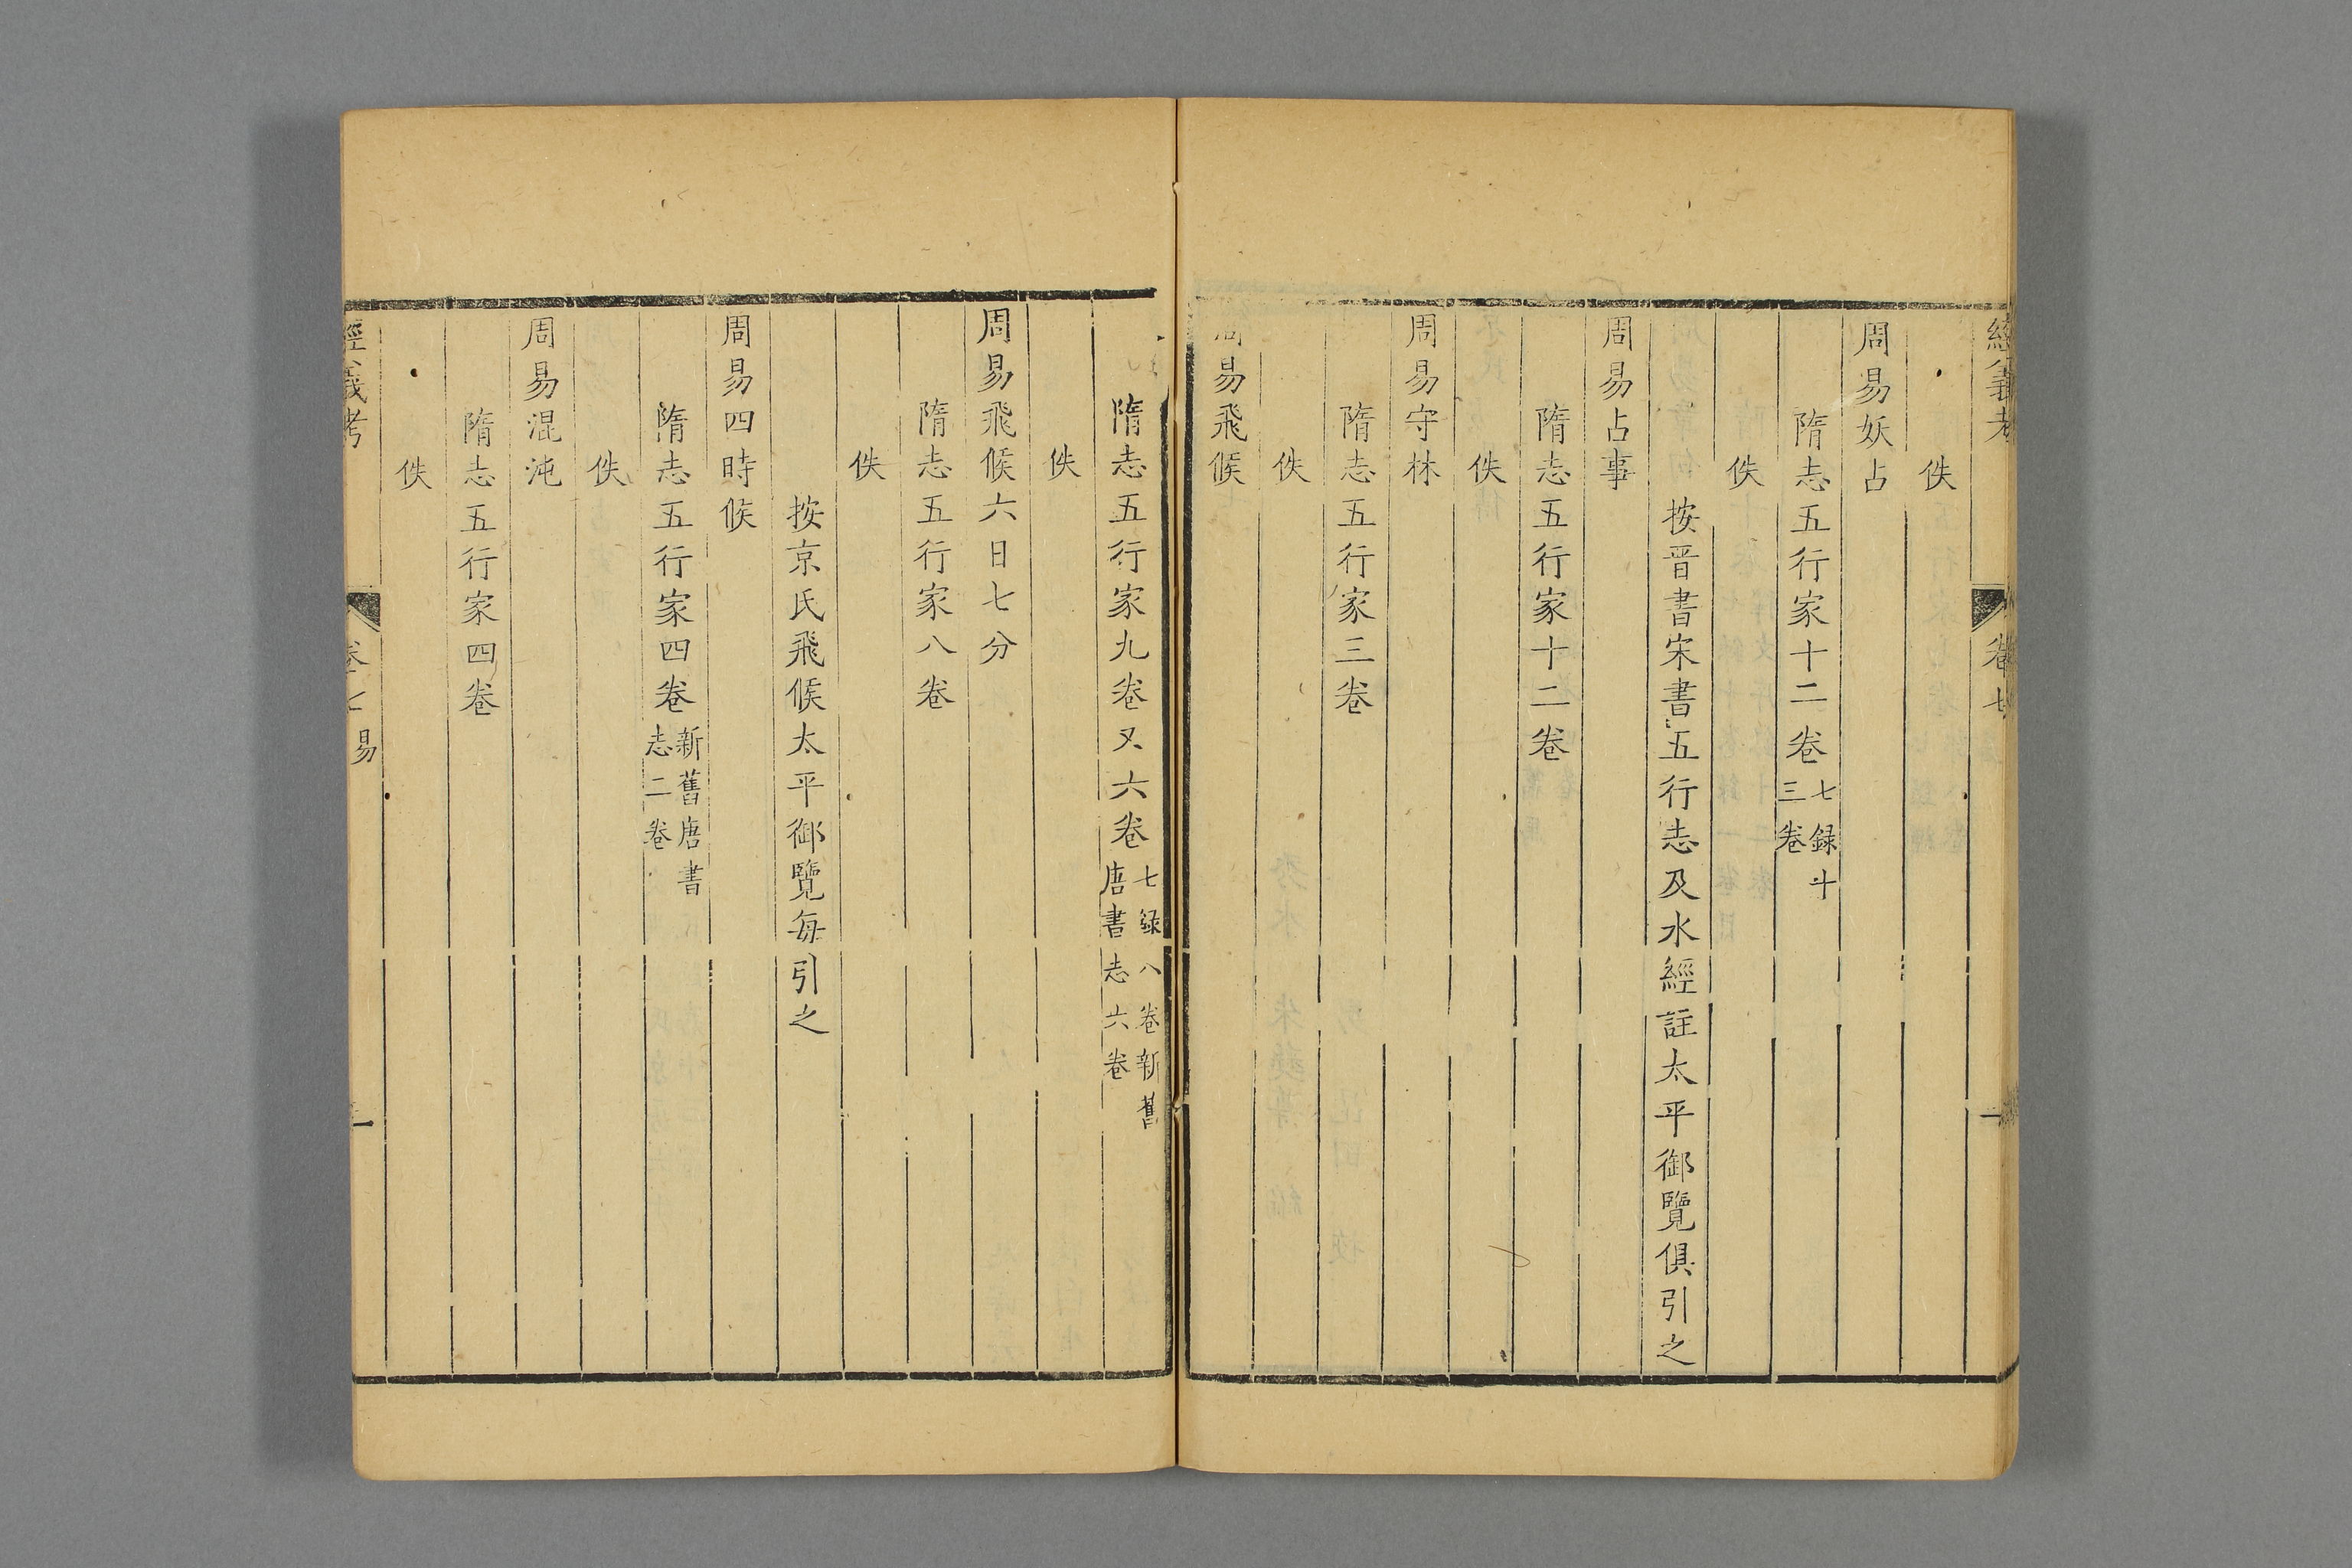 經義考
卷七
佚
周易妖占
隋志五行家十二卷七録斗三卷
佚
按晋書宋書五行志及水經註太平御覽俱引之
周易占事
隋志五行家十二卷
佚
周易守林
隋志五行家三卷
佚
周易飛候
隋志五行家九卷又六卷七録八卷新舊唐書志六卷
佚
周易飛候六日七分
隋志五行家八卷
佚
按京氏飛候太平御覽每引之
周易四時候
隋志五行家四卷新舊唐書志二卷
佚
周易混沌
隋志五行家四卷
佚
經義考
卷七
易